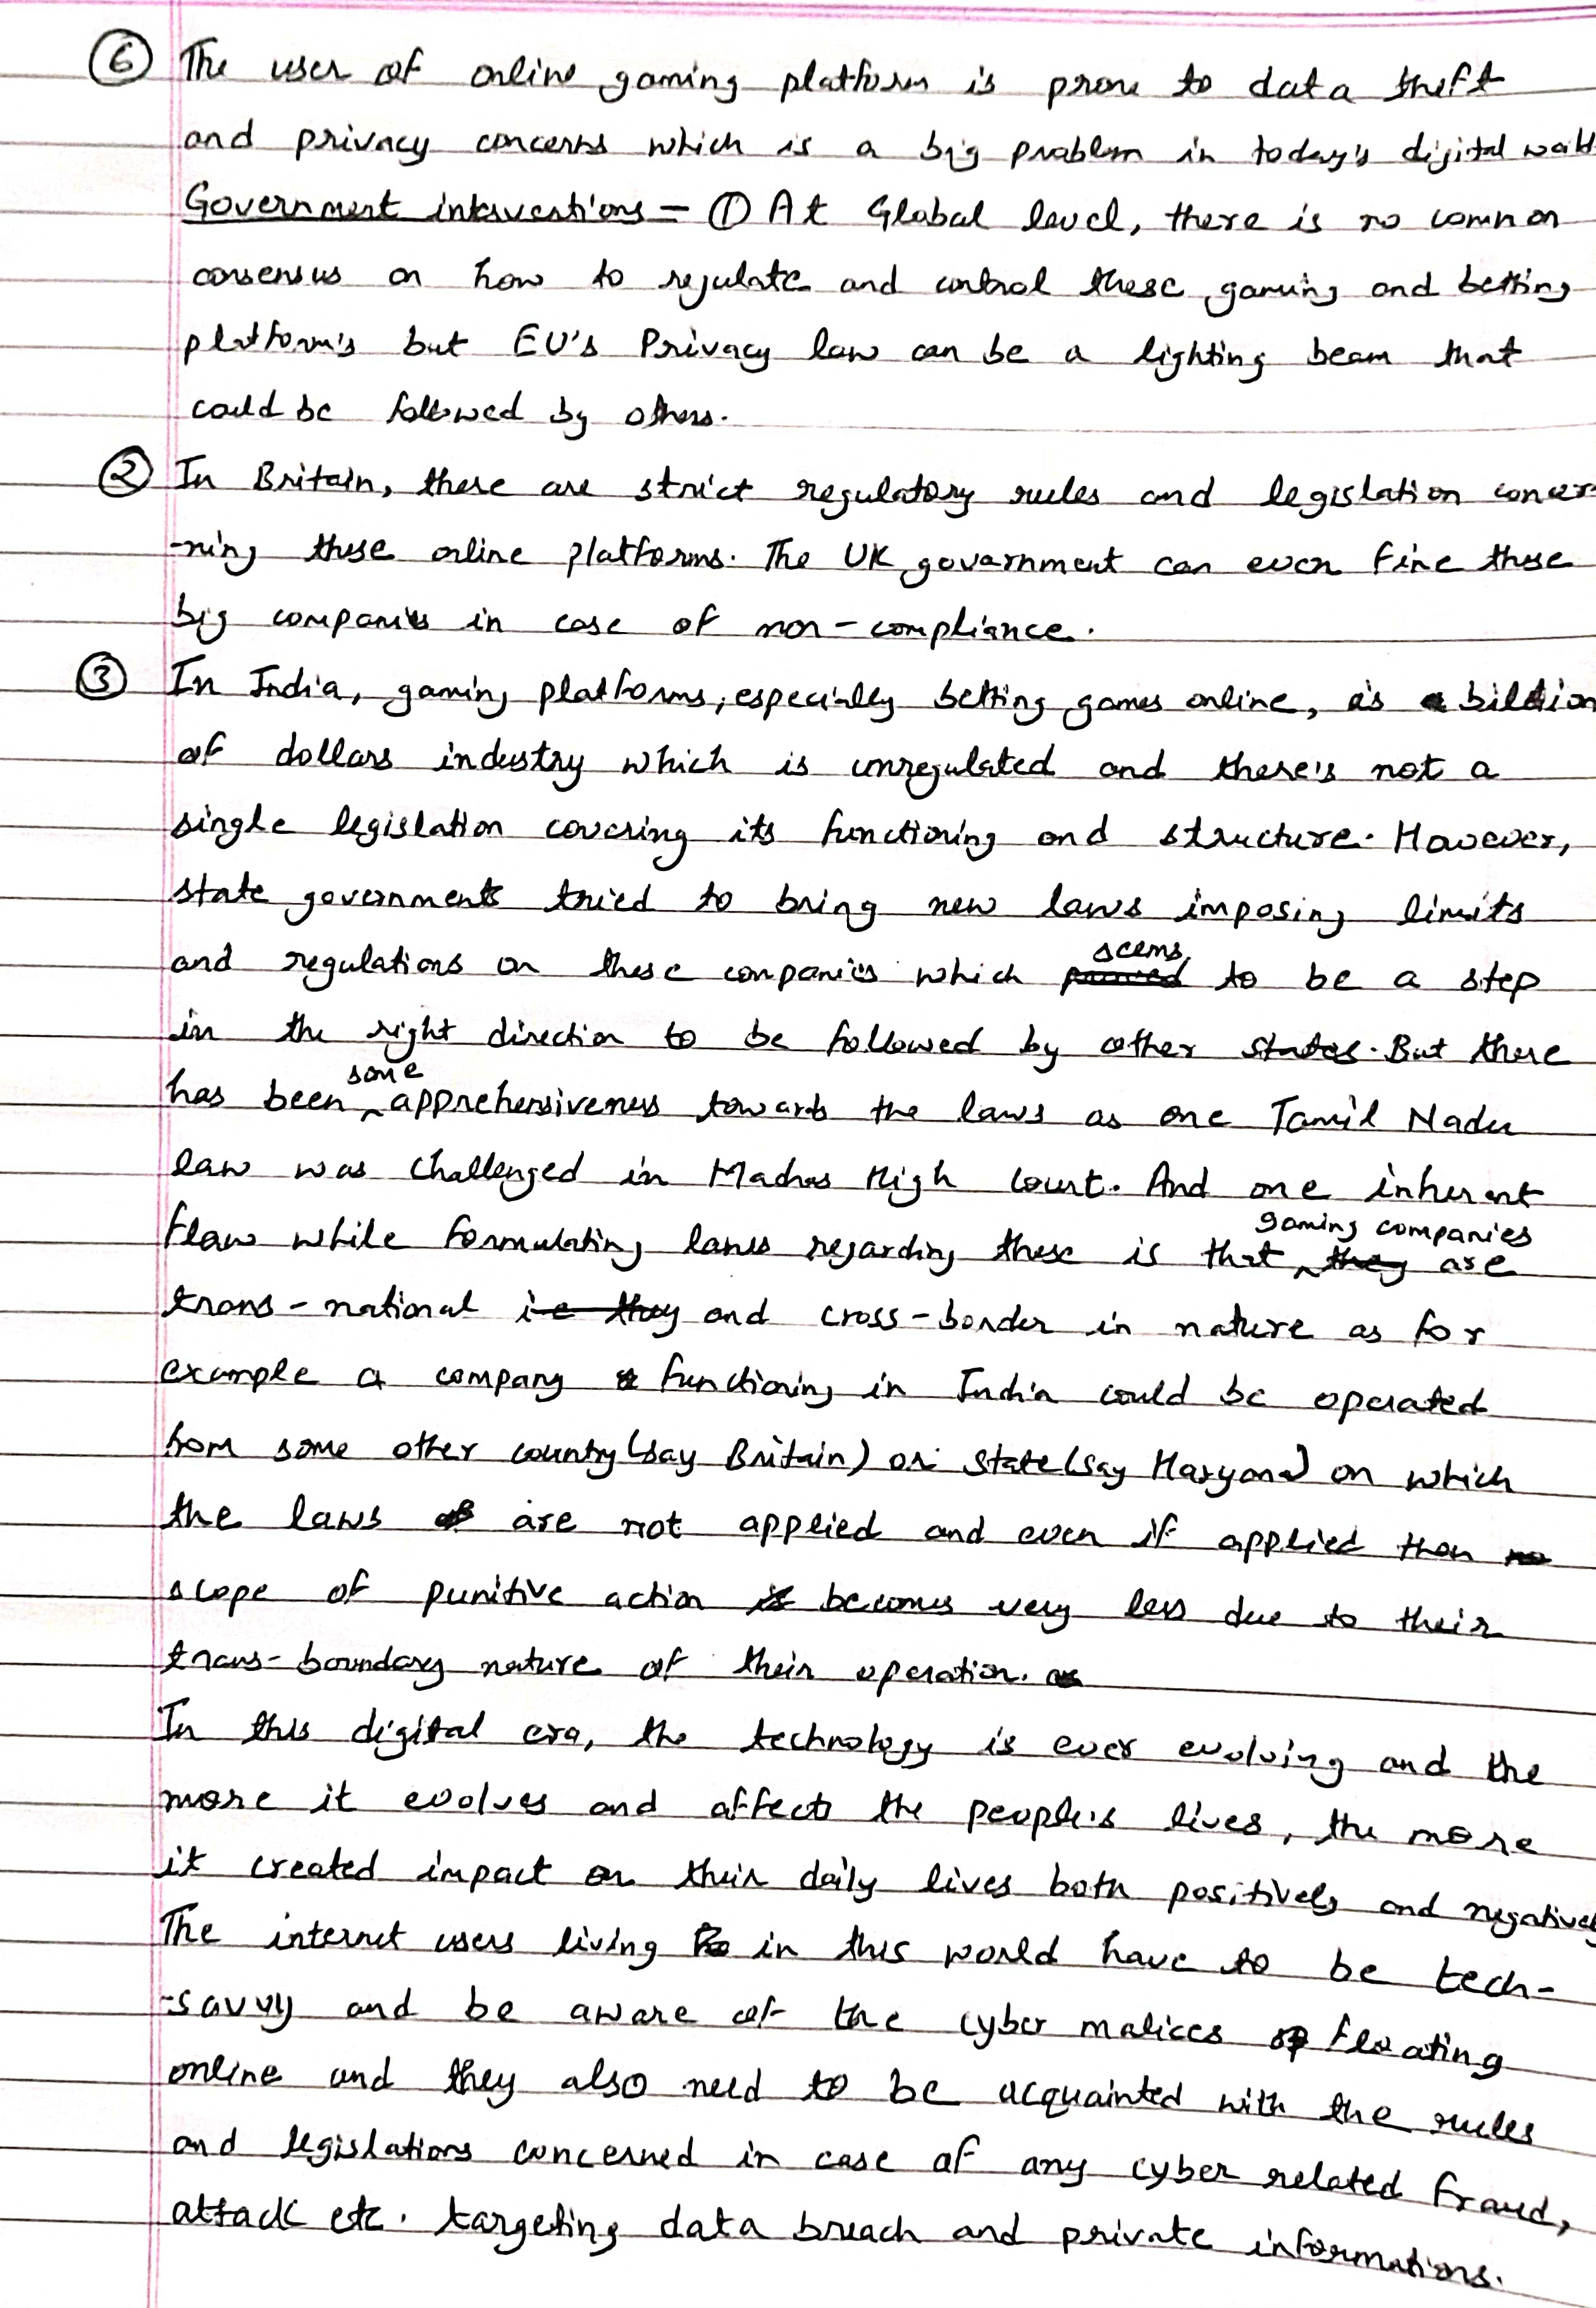 ⑥ The user of online gaming platform is prone to data theft
and privacy concerns which is a big problem in today's digital world
Government interventions - ① At Global level, there is no common
consensus on how to regulate and control these gaming and betting
platform's but EU's Privacy law can be a lighting beam that
could be followed by others.
② In Britain, there are strict regulatory rules and legislation concer-
-ning these online platforms. The UK government can even fine these
big companies in case of non-compliance.
③ In India, gaming platforms, especially betting games online, is billion
of dollars industry which is unregulated and there's not a
single legislation covering its functioning and structure. However,
state governments tried to bring new laws imposing limits
and regulations on these companies which seems to be a step
in the right direction to be followed by other states. But there
has been some apprehensiveness towards the laws as one Tamil Nadu
law was challenged in Madras High Court. And one inherent
flaw while formulating laws regarding these is that gaming companies are
trans-national and cross-border in nature as for
example a company functioning in India could be operated
from some other country (say Britain) or state (say Haryana) on which
the laws are not applied and even if applied then
scope of punitive action becomes very less due to their
trans-boundary nature of their operation.
In this digital era, the technology is ever evolving and the
more it evolves and affects the people's lives, the more
it created impact on their daily lives both positively and negatively
The internet users living in this world have to be tech-
-savvy and be aware of the cyber malices floating
online and they also need to be acquainted with the rules
and legislations concerned in case of any cyber related fraud,
attack etc. targeting data breach and private informations.